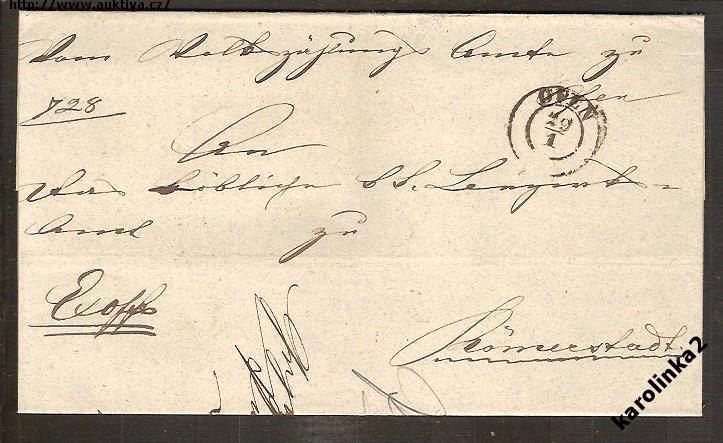 http://www.auktiva.cz/
Vom Volkszählungs Amte zu
Ofen
728
OFEN
29
1
An
Das Löbliche k. k. Bezirks=
Amt zu
Exoffo
Römerstadt
karolinka2